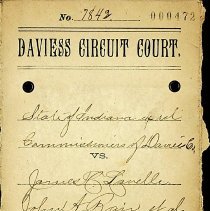 No. 7842 000472
DAVIESS CIRCUIT COURT.
State of Indiana ex rel
Commissioners of Daviess Co,
VS.
James C Lavelle
John A Bair et al